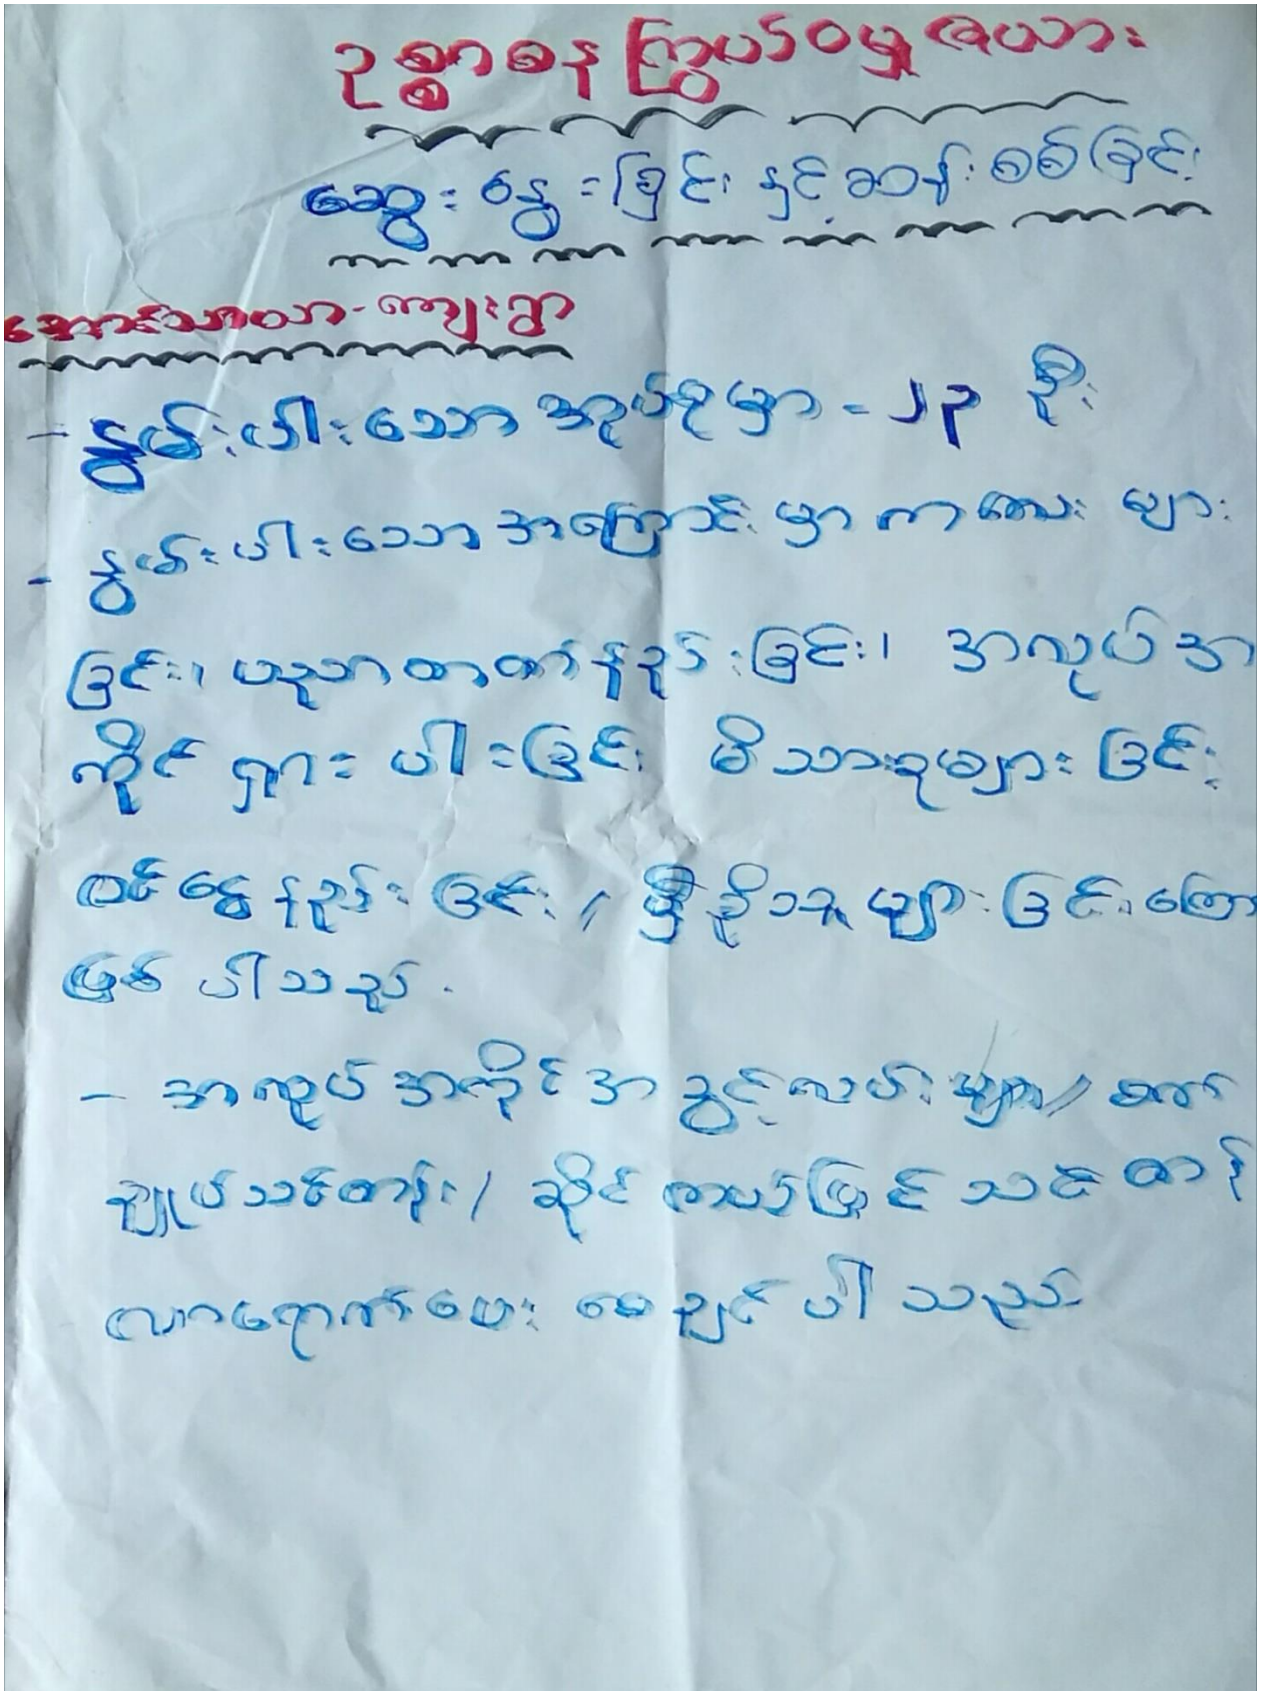 ဥစ္စာဓန ကြွယ်ဝမှု ဇယား
ဆွေးနွေးခြင်း နှင့် ဆန်းစစ်ခြင်း
အောင်သာယာ-ကျေးရွာ
- နွမ်းပါးသော အုပ်စုမှာ - ၂၃ ဦး
- နွမ်းပါးသော အကြောင်းမှာ ကလေး များ
ခြင်း၊ ပညာတတ်နည်းခြင်း၊ အလုပ်အ
ကိုင် ရှား ပါးခြင်း မိသားစုများ ခြင်း
ဝင်ငွေ နည်း ခြင်း / မှီခိုသူ များ ခြင်း ကြော
ဖြစ် ပါသည်.
- အလုပ်အကိုင်အခွင့်လမ်း များ / စက်
ချုပ်သင်တန်း / ဆိုင် ကယ်ပြင် သင် တန်
လာရောက်ပေး စေချင် ပါ သည်.